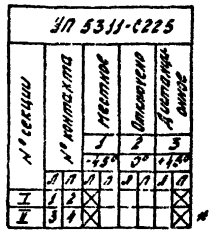 УП 5311-С225
№ секции
№ контакта
Местное
Отключено
Дистанционное
1 2 3
-45° 0° +45°
Л П Л П Л П Л П
I 1 2
II 3 4
*